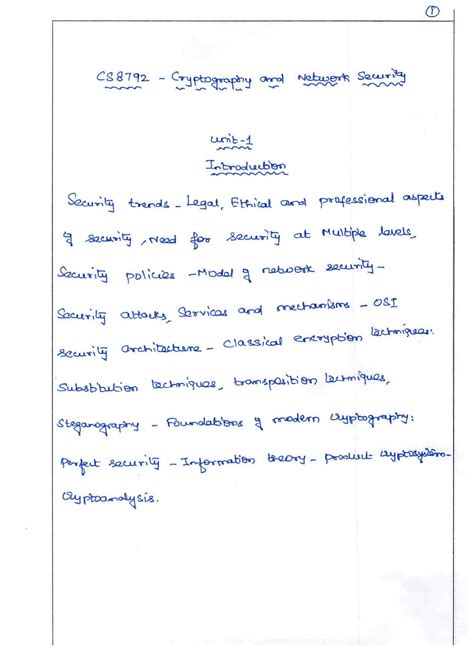 1
CS8792 - Cryptography and Network Security
Unit-1
Introduction
Security trends - Legal, Ethical and professional aspects
of security, Need for security at Multiple levels,
Security policies - Model of network security -
Security attacks, Services and mechanisms - OSI
security architecture - Classical encryption techniques:
Substitution techniques, transposition techniques,
Steganography - Foundations of modern cryptography:
Perfect security - Information theory - product cryptosystem -
Cryptoanalysis.